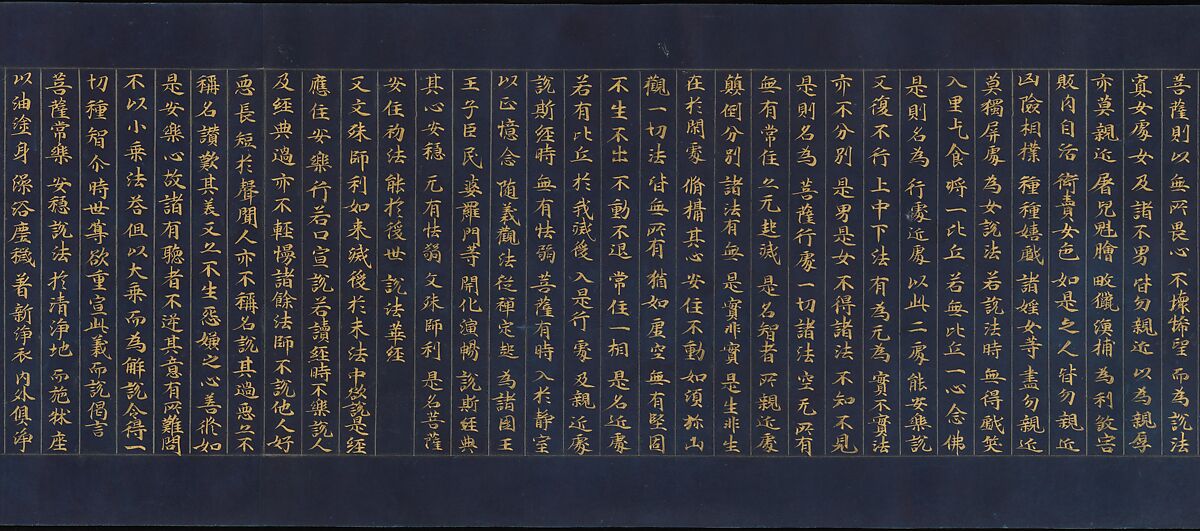 菩薩則以無所畏心不懷悕望而為說法
寡女處女及諸不男皆勿親近以為親厚
亦莫親近屠兒魁膾畋獵漁捕為利敎害
販肉自活衒賣女色如是之人皆勿親近
凶險相撲種種嬉戲諸婬女等盡勿親近
莫獨屏處為女說法若說法時無得戲笑
入里乞食將一比丘若無比丘一心念佛
是則名為行處近處以此二處能安樂說
又復不行上中下法有為无為實不實法
亦不分別是男是女不得諸法不知不見
是則名為菩薩行處一切諸法空无所有
無有常住亦无起滅是名智者所親近處
顛倒分別諸法有無是實非實是生非生
在於閑處脩攝其心安住不動如須弥山
觀一切法皆無所有猶如虛空無有堅固
不生不出不動不退常住一相是名近處
若有比丘於我滅後入是行處及親近處
說斯經時無有怯弱菩薩有時入於靜室
以正憶念隨義觀法從禪定起為諸國王
王子臣民婆羅門等開化演暢說斯經典
其心安穩无有怯弱文殊師利是名菩薩
安住初法能於後世說法華經
又文殊師利如来滅後於末法中欲說是經
應住安樂行若口宣說若讀經時不樂說人
及經典過亦不輕慢諸餘法師不說他人好
惡長短於聲聞人亦不稱名說其過惡亦不
稱名讚歎其美又亦不生怨嫌之心善脩如
是安樂心故諸有聽者不逆其意有所難問
不以小乘法荅但以大乘而為解說令得一
切種智尒時世尊欲重宣此義而說偈言
菩薩常樂安穩說法於清淨地而施牀座
以油塗身澡浴塵穢著新淨衣內外俱淨